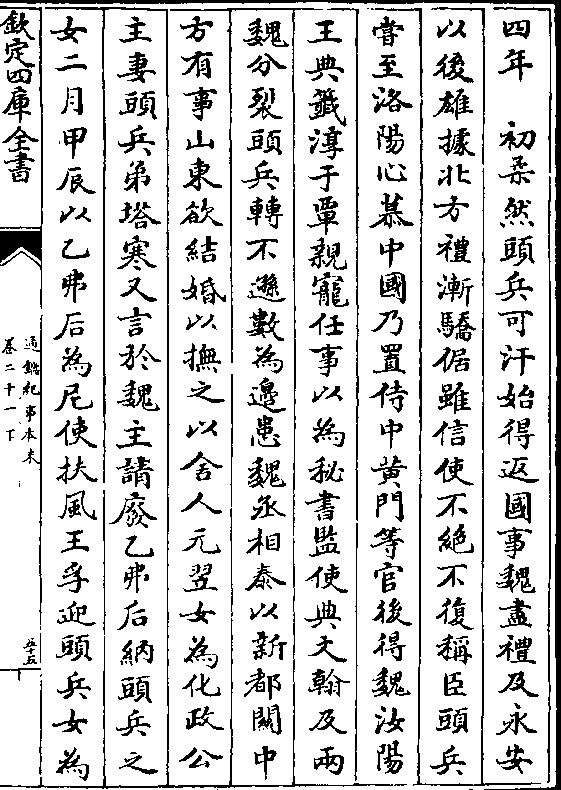 四年　初柔然頭兵可汗始得返國事魏盡禮及永安
以後雄據北方禮漸驕倨雖信使不絶不復稱臣頭兵
嘗至洛陽心慕中國乃置侍中黄門等官後得魏汝陽
王典籤淳于覃親寵任事以為秘書監使典文翰及兩
魏分裂頭兵轉不遜數為邊患魏丞相泰以新都關中
方有事山東欲結婚以撫之以舍人元翌女為化政公
主妻頭兵弟塔寒又言於魏主請廢乙弗后納頭兵之
女二月甲辰以乙弗后為尼使扶風王孚迎頭兵女為
欽定四庫全書
通鑑紀事本末
卷二十一下
五十五